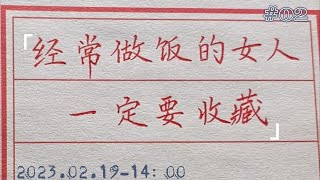 #02
「经常做饭的女人
一定要收藏」
2023.02.19-14:00